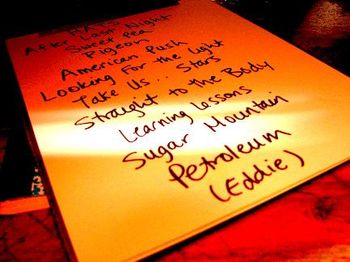 After Last Night
Sweet Pea
Pigeons
American Push
Looking For the Light
Take Us... Stars
Straight to the Body
Learning Lessons
Sugar Mountain
Petroleum
(Eddie)